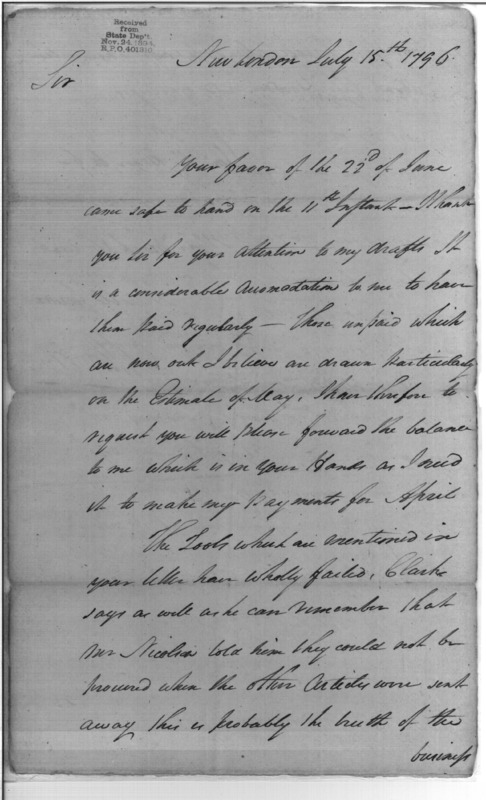 Received
from
State Dep't.
Nov. 24, 1894.
R.P.O. 401310
New London July 15.th 1796.
Sir
Your favor of the 22d of June
came safe to hand on the 11th Instant — I thank
you Sir for your attention to my drafts It
is a considerable Accomodation to me to have
them paid regularly — those unpaid which
are now out I believe are drawn particularly
on the Estimate of May, I have therefore to
request you will please forward the balance
to me which is in your Hands as I need
it to make my payments for April
The Tools which are mentioned in
your letter have wholly failed, Clarke
says as well as he can remember that
Mr Nicolson told him they could not be
procured when the other Articles were sent
away this is probably the truth of the
business